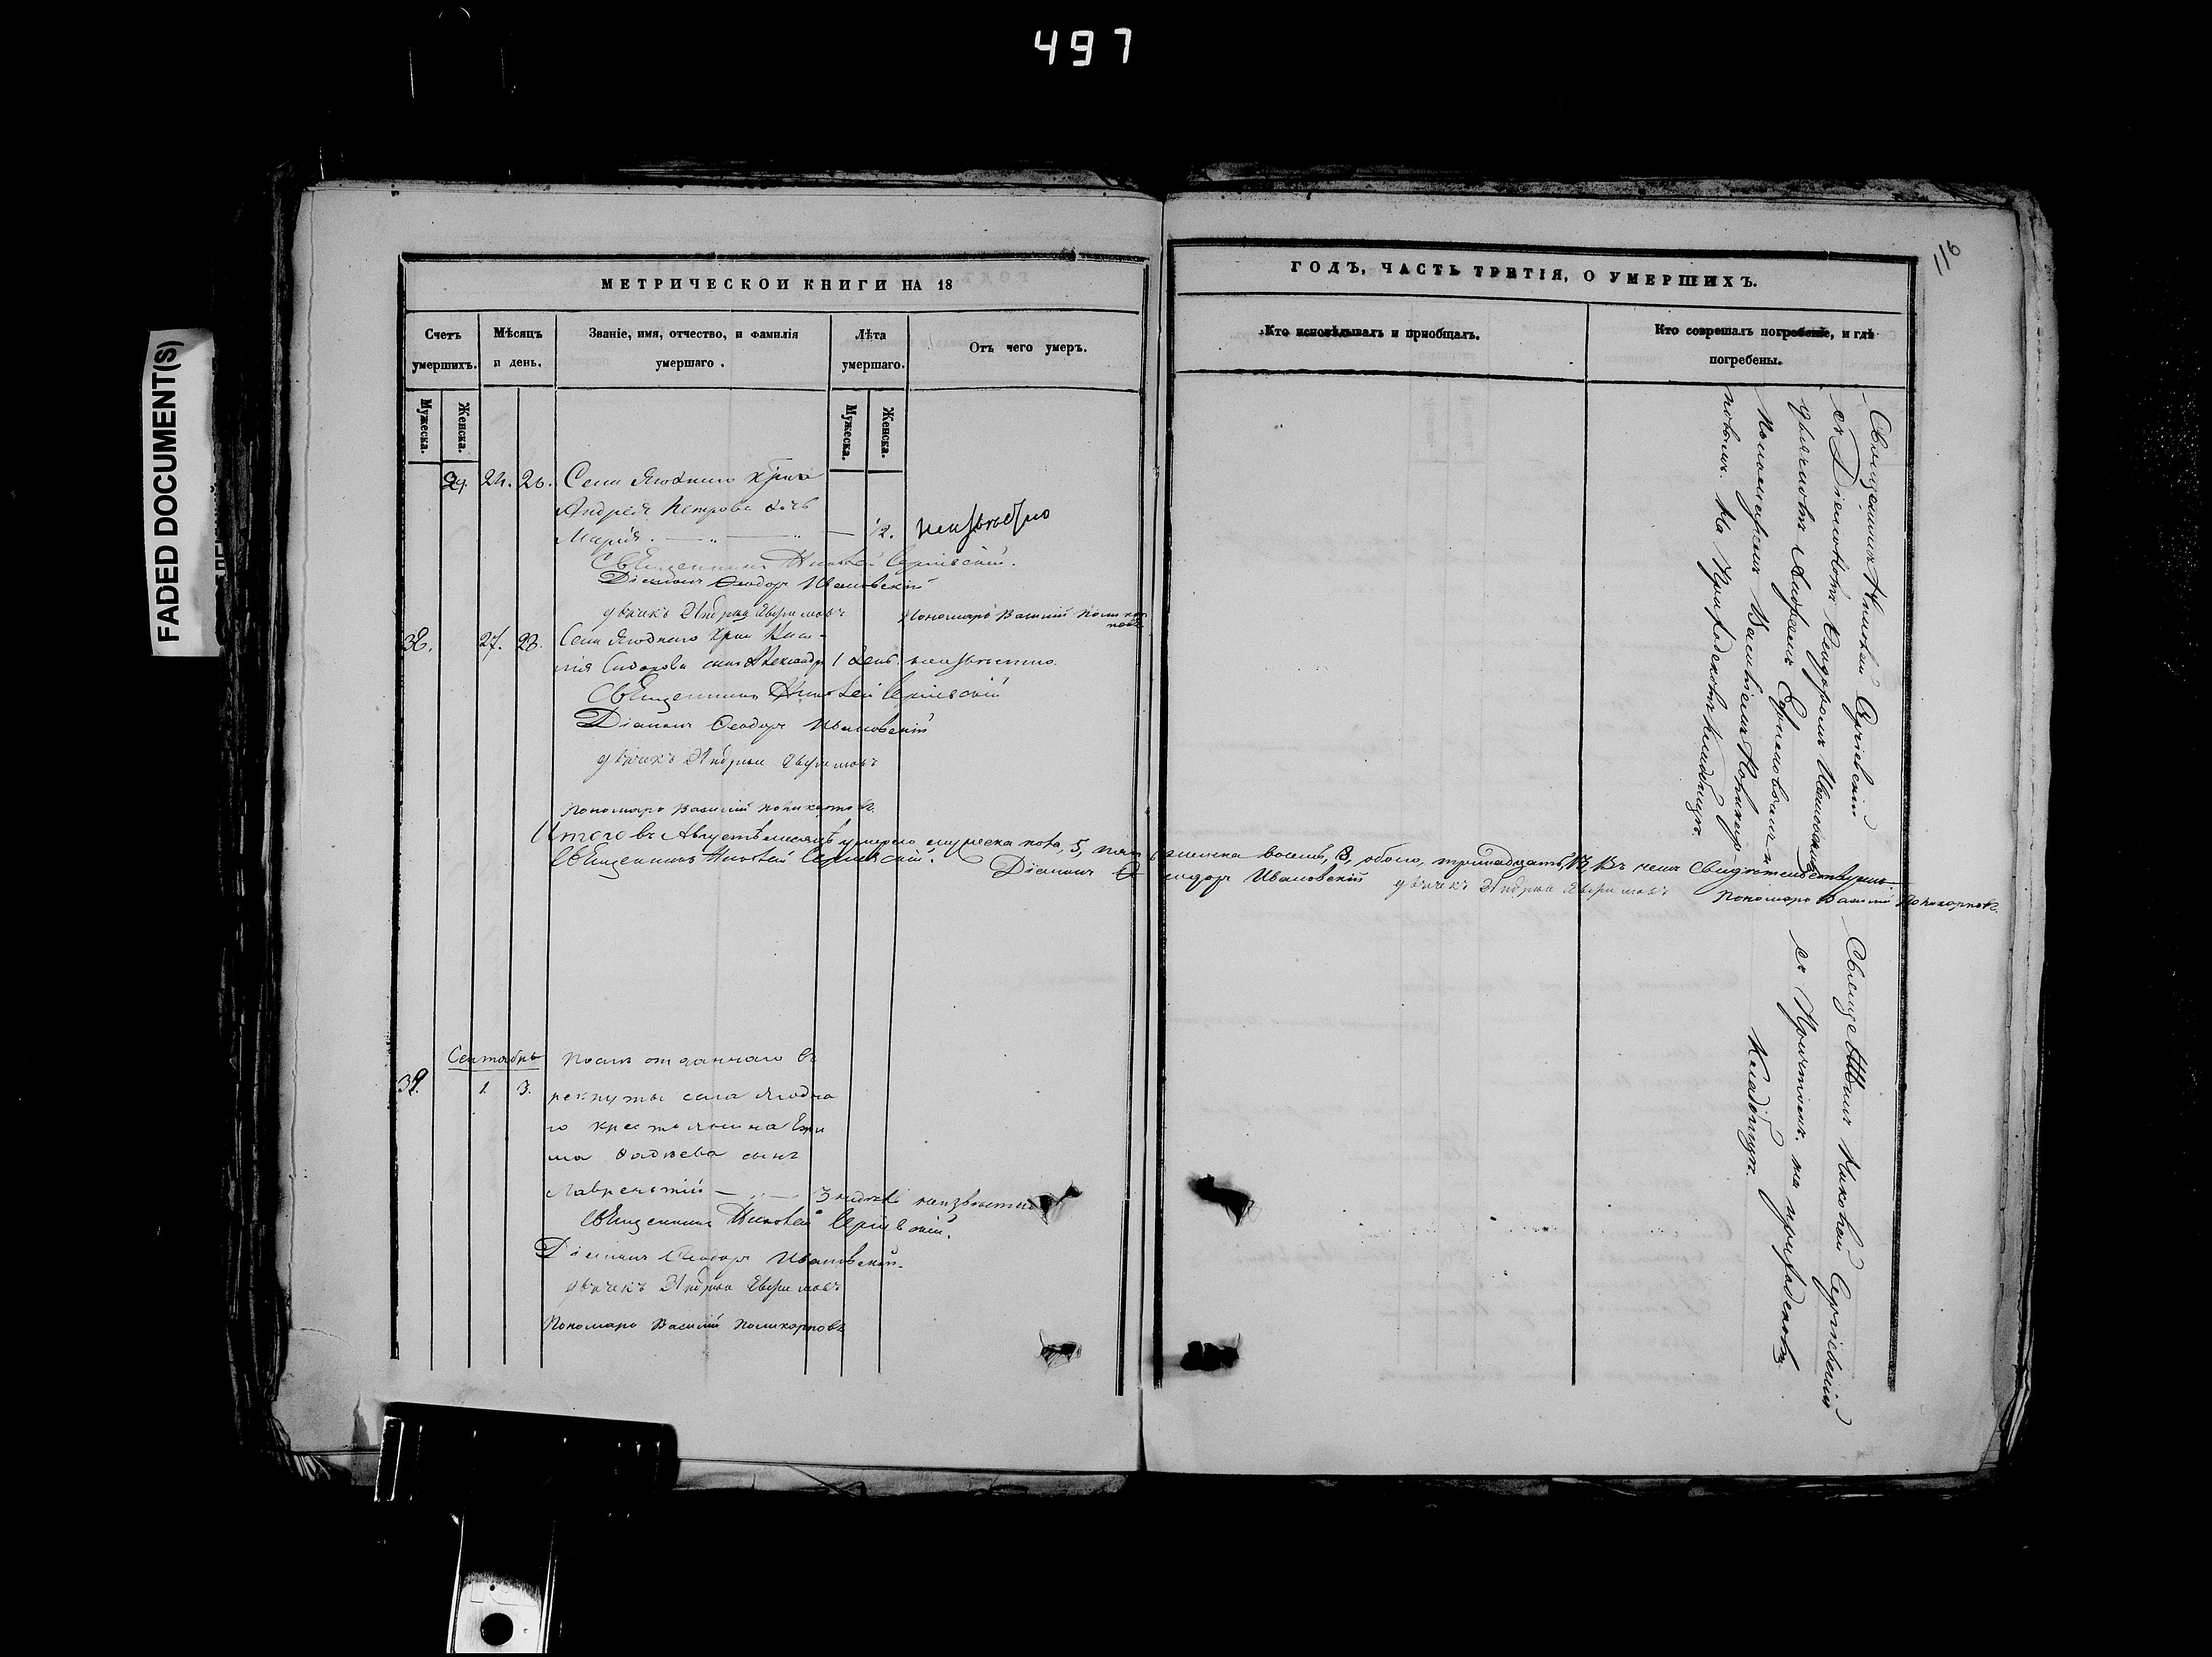 497
116
FADED DOCUMENT(S)
МЕТРИЧЕСКОЙ КНИГИ НА 18
Счетъ умершихъ.
Мѣсяцъ и день.
Званіе, имя, отчество, и фамилія умершаго.
Лѣта умершаго.
Отъ чего умеръ.
Мужеска.
Женска.
Мужеска.
Женска.
24. 26. Села Ягоднаго
Андрея Петрова дочь
Марія. — „ — „ — 1/2. неизвѣстно
Священникъ Николай Сергіевскій.
Діаконъ Ѳеодоръ Ивановскій
дьячекъ Андрей
Пономарь Василій Поликарповъ
38. 27. 28. Села Ягоднаго
Сидорова сынъ Александръ 1 день. неизвѣстно.
Священникъ Николай Сергіевскій
Діаконъ Ѳеодоръ Ивановскій
дьячекъ Андрей
Пономарь Василій Поликарповъ.
Итого въ Августѣ месяцѣ умерло мужеска пола, 5, пять женска восемь, 8, обоего, тринадцать, 13, Въ чемъ свидѣтельствуемъ
Священникъ Николай Сергіевскій.
Діаконъ Ѳеодоръ Ивановскій дьячекъ Андрей
Пономарь Василій Поликарповъ.
Сентябрь
39. 1. 3.
Послѣ отданнаго въ
рекруты села Ягодна
го крестьянина
Ѳадѣева сынъ
Лаврентій — „ — 3 неизвѣстно
Священникъ Николай Сергіевскій.
Діаконъ Ѳеодоръ Ивановскій.
дьячекъ Андрей
Пономарь Василій Поликарповъ
ГОДЪ, ЧАСТЬ ТРЕТІЯ, О УМЕРШИХЪ.
Кто исповѣдывалъ и приобщалъ.
Кто соврешалъ погребеніе, и гдѣ погребены.
Священникъ Николай Сергіевскій
съ Діакономъ Ѳеодоромъ Ивановскимъ
дьячкомъ Андреемъ и
Пономаремъ Василіемъ Поликар-
повымъ. На Приходскомъ Кладбищѣ.
Священникъ Николай Сергіевскій
съ Причтомъ. на приходскомъ
Кладбищѣ.